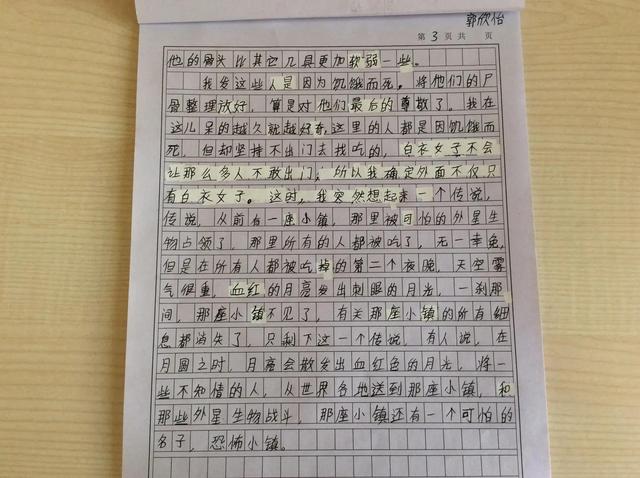 郭欣怡
第 3 页 共 页
他的骨头比其它几具更加软弱一些。
我发这些人是因为饥饿而死。将他们的尸
骨整理放好，算是对他们最后的尊敬了。我在
这儿呆的越久就越好奇，这里的人都是因饥饿而
死，但却坚持不出门去找吃的，白衣女子不会
让那么多人不敢出门，所以我确定外面不仅只
有白衣女子。这时，我突然想起来一个传说，
传说，从前有一座小镇，那里被可怕的外星生
物占领了，那里所有的人都被吃了，无一幸免，
但是在所有人都被吃掉的第二个夜晚，天空雾
气很重，血红的月亮发出刺眼的月光，一刹那
间，那座小镇不见了，有关那座小镇的所有细
息都消失了，只剩下这一个传说，有人说，在
月圆之时，月亮会散发出血红色的月光，将一
些不知情的人，从世界各地送到那座小镇，和
那些外星生物战斗，那座小镇还有一个可怕的
名子，恐怖小镇。